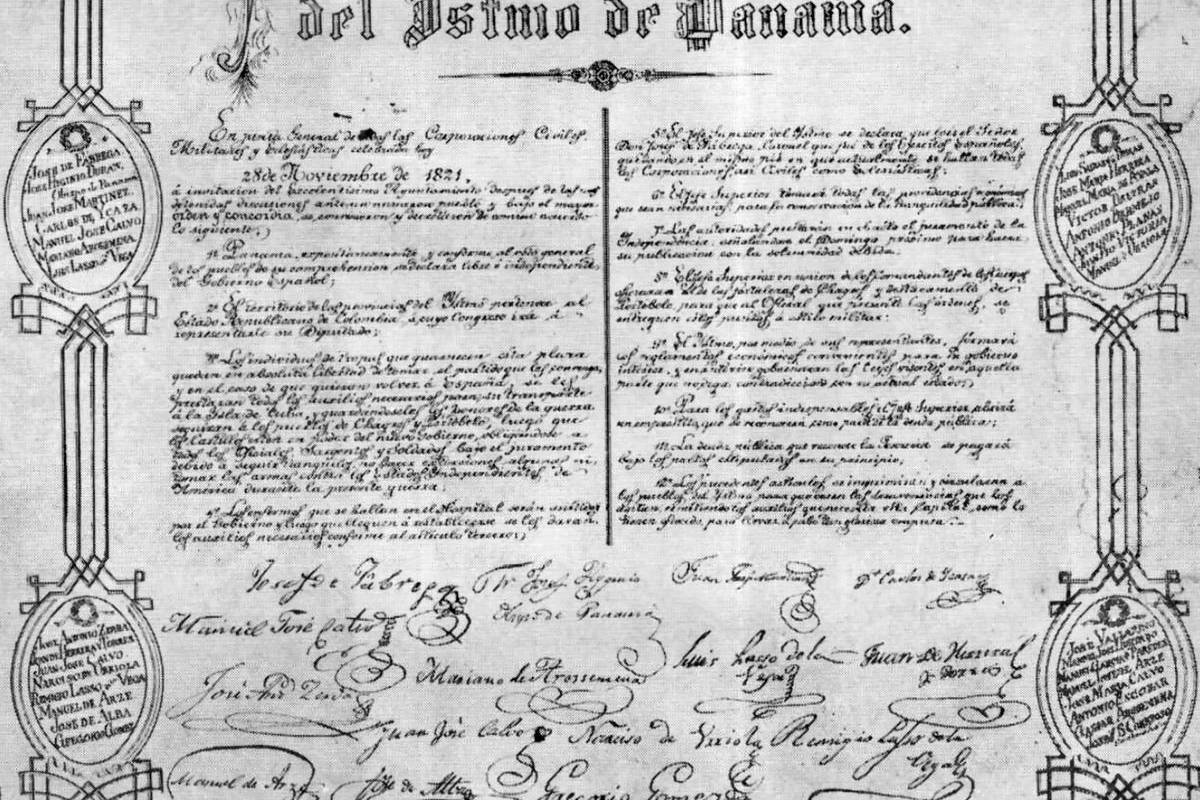 del Istmo de Panama.
En junta General de todas las Corporaciones Civiles,
Militares y Eclesiásticas celebrada hoy
28 de Noviembre de 1821,
á invitacion del Excelentísimo Ayuntamiento despues de las
detenidas discusiones ante un numeroso pueblo y bajo el mayor
orden y concordia, se convinieron y decretaron de comun acuerdo
lo siguiente;
1º Panama, espontaneamente y conforme al voto general
de los pueblos de su comprehension se declara libre é independiente
del Gobierno Español;
2º El territorio de las provincias del Istmo pertenece al
Estado Republicano de Colombia, á cuyo Congreso irá á
representarle su Diputado;
Los individuos de tropa que guarnecen esta plaza
quedan en absoluta libertad de tomar el partido que les convenga,
y en el caso de que quieran volver á España, se les
prestaran todos los auxilios necesarios para su transporte
á la Isla de Cuba, y guardandoseles los honores de la guerra
seguiran á los puertos de Chagres y Portobelo, luego que
los Castillos esten en poder del nuevo Gobierno, obligandose
todos los Oficiales, Sargentos y Soldados bajo el juramento
debido á seguir tranquilos, no hacer extorsiones algunas ni
tomar las armas contra los Estados Independientes de
América durante la presente guerra;
4º Los enfermos que se hallan en el Hospital serán asistidos
por el Gobierno y luego que lleguen á restablecerse se les daran
los auxilios necesarios conforme al articulo tercero;
5º El Jefe Superior del Istmo se declara que lo es el Señor
Don José de Fábrega, Coronel que fué de los Ejércitos Españoles,
quedando en el mismo pié en que actualmente se hallan todas
las Corporaciones asi Civiles como Eclesiásticas;
6º El Jefe Superior tomará todas las providencias económicas
que sean necesarias para la conservacion de la tranquilidad pública;
7º Las autoridades prestarán en el acto el juramento de la
Independencia, señalandose el Domingo próximo para hacer
su publicacion con la solemnidad debida.
8º El Jefe Superior en union de los Comandantes de los cuerpos
de las fortalezas de Chagres y destacamento de
Portobelo, para que al Oficial que presente las órdenes, se
entreguen estos puntos á estilo militar.
9º El Istmo, por medio de sus representantes, formará
los reglamentos económicos convenientes para su gobierno
interior, y en interin gobernaran las leyes vigentes en aquella
parte que no diga contradiccion con su actual estado;
10º Para los gastos indispensables el Jefe Superior abrirá
un emprestito, que se reconocerá como parte de la deuda pública;
11º La deuda pública que reconoce la Tesoreria se pagará
bajo los pactos estipulados en su principio,
12º Los precedentes articulos se imprimirán y circularán á
los pueblos del Istmo para que cesen las desavenencias que los
agitan, remitiendo los auxilios que necesita esta Capital, como lo
tienen ofrecido, para llevar á cabo tan gloriosa empresa.
José de Fábrega
José Higinio
Obispo de Panamá
Juan José Martinez
Dr. Carlos de Icaza
Manuel José Calvo
Mariano de Arosemena
Luis Lasso de la
Vega
Juan de Herrera
y Torres
José Antº Zerda
Juan José Calvo
Narciso de Urriola
Remigio Lasso de la
Vega
Manuel de Arze
José de Alba
Gregorio Gomez
JOSE DE FABREGA
JOSE HIGINIO DURAN,
Obispo de Panama
JUAN JOSE MARTINEZ
CARLOS DE ICAZA
MANUEL JOSE CALVO
MARIANO AROSEMENA
LUIS LASSO DE LA VEGA
JOSE ANTONIO ZERDA
JUAN DE HERRERA Y TORRES
JUAN JOSE CALVO
NARCISO DE URRIOLA
REMIGIO LASSO DE LA VEGA
MANUEL DE ARZE
JOSE DE ALBA
GREGORIO GOMEZ
LUIS SALVADOR DURAN
JOSE MARIA HERRERA
MANUEL MARIA DE AYALA
VICTOR
ANTONIO BERMEJO
ANTONIO PLANAS
JUAN PIO VICTORIA
MANUEL
JOSE VALLARINO
MANUEL JOSE HURTADO
MANUEL GARCIA DE PAREDES
MANUEL JOSE DE ARZE
JOSE MARIA CALVO
ANTONIO ESCOBAR
GASPAR AROSEMENA
JOSE DE LOS S. CORREOSO